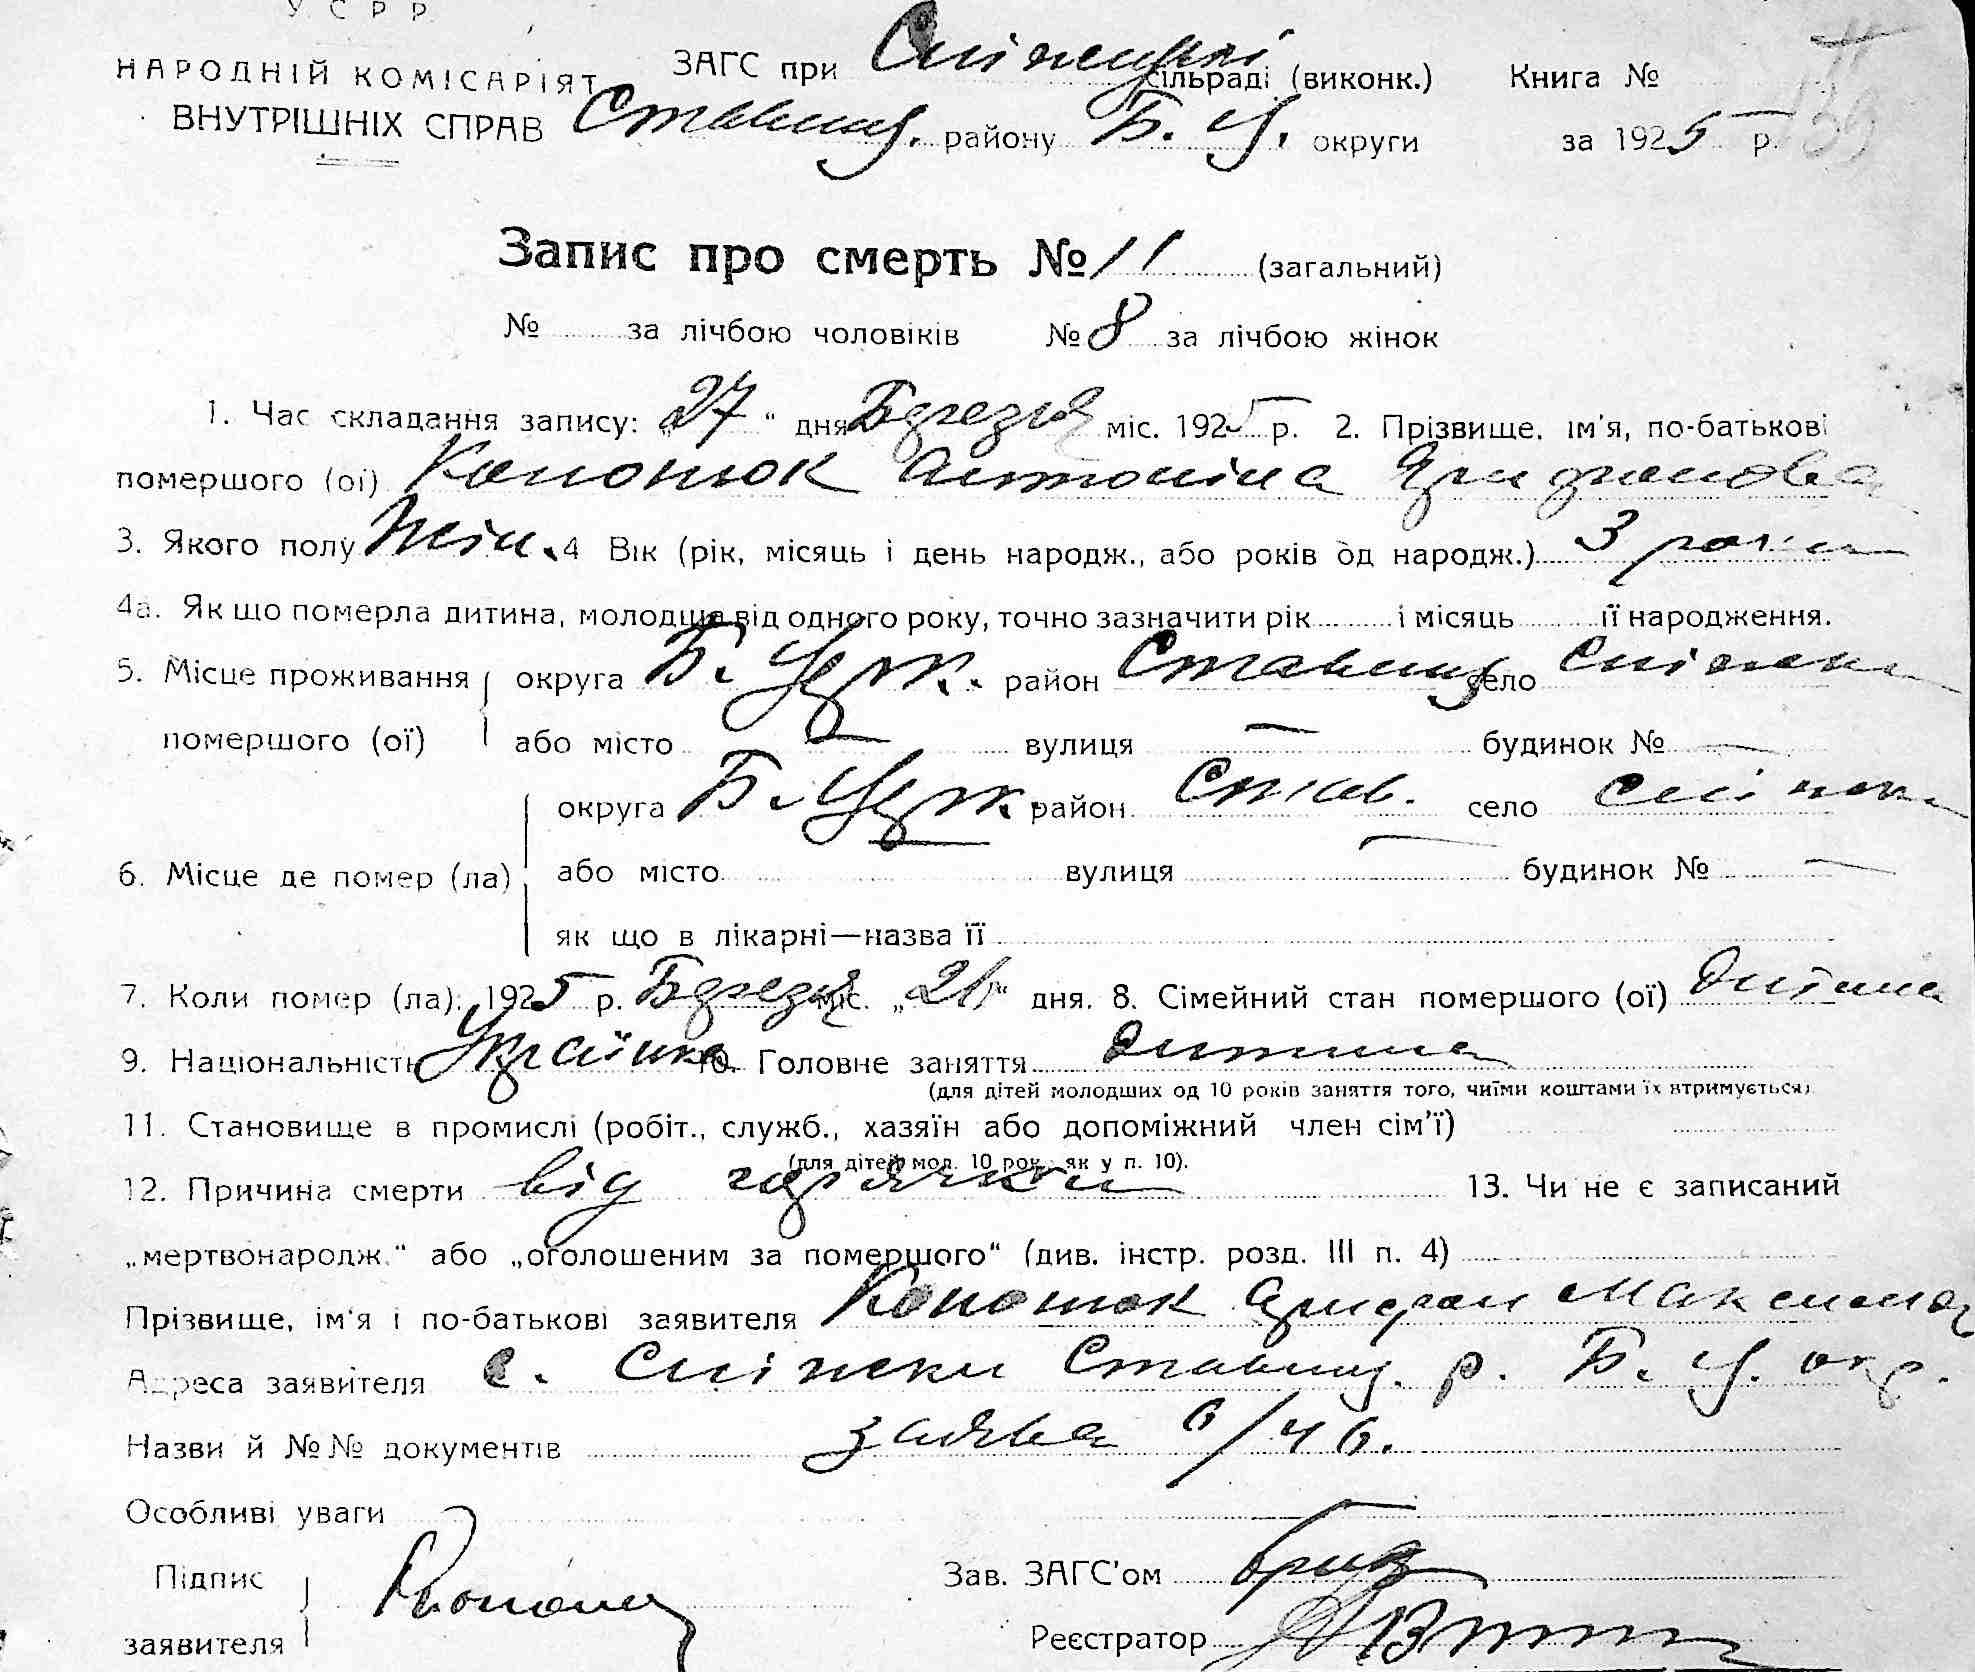 У С Р Р
НАРОДНІЙ КОМІСАРІЯТ ЗАГС при сільраді (виконк.) Книга №
ВНУТРІШНІХ СПРАВ Ставищ. району Б. Ц. округи за 1925 р. 139
Запис про смерть № 11 (загальний)
№ за лічбою чоловіків № 8 за лічбою жінок
1. Час складання запису: „27" дня Березня міс. 1925 р. 2. Прізвище. ім'я, по-батькові
помершого (ої) Кононюк Антоніна
3. Якого полу Жін. 4 Вік (рік, місяць і день народж., або років од народж.) 3 роки
4а. Як що померла дитина, молодша від одного року, точно зазначити рік і місяць її народження.
5. Місце проживання округа Б. Церк. район Ставищ село Сніжки
помершого (ої) або місто — вулиця — будинок № —
округа Б. Церк. район Став. село Сніжки
6. Місце де помер (ла) або місто вулиця — будинок № —
як що в лікарні—назва її
7. Коли помер (ла): 1925 р. Березня міс. „26" дня. 8. Сімейний стан помершого (ої) дитина
9. Національність Українка 10. Головне заняття дитина
(для дітей молодших од 10 років заняття того, чиїми коштами їх втримується)
11. Становище в промислі (робіт., служб., хазяїн або допоміжний член сім'ї)
(для дітей мол. 10 рок. як у п. 10).
12. Причина смерти від горячки 13. Чи не є записаний
„мертвонародж." або „оголошеним за помершого" (див. інстр. розд. III п. 4)
Прізвище, ім'я і по-батькові заявителя Кононюк
Адреса заявителя с. Сніжки Ставищ. р. Б. Ц. окр.
Назви й №№ документів заява
Особливі уваги
Підпис Зав. ЗАГС'ом
заявителя Реєстратор